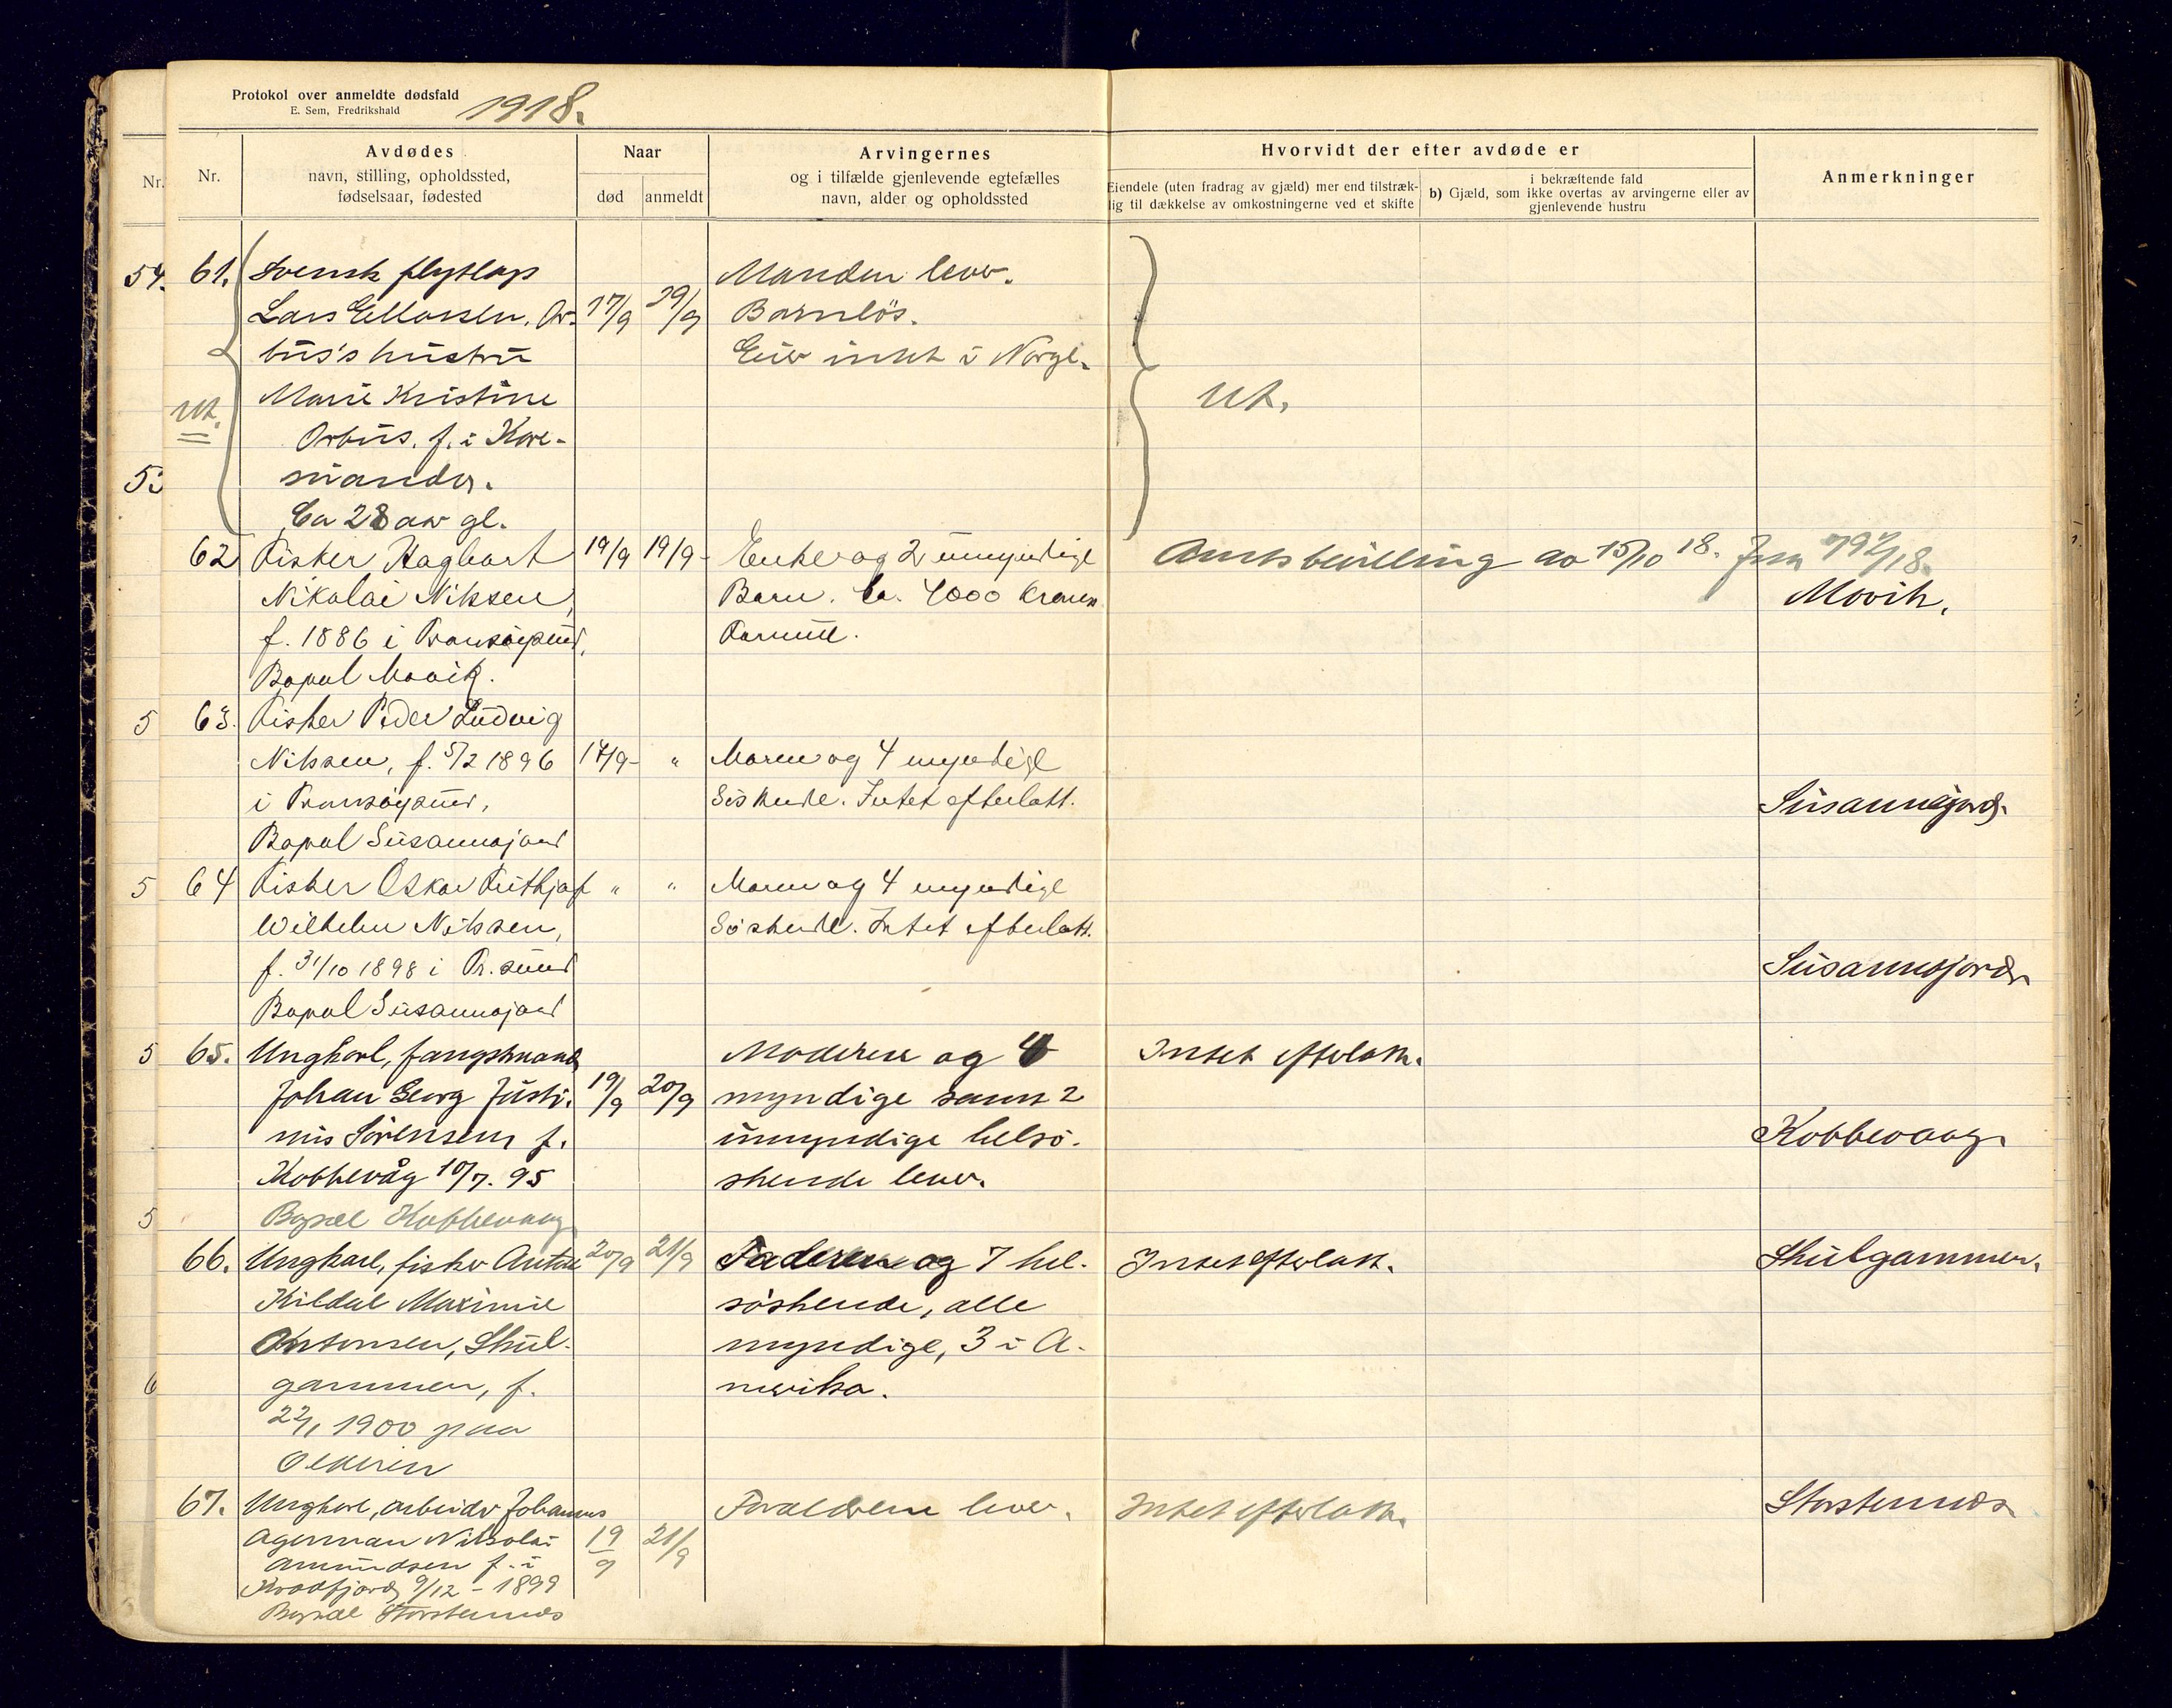 Protokol over anmeldte dødsfald
E. Sem, Fredrikshald
1918.
Nr.
Nr.
Avdødes
navn, stilling, opholdssted,
fødselsaar, fødested
Naar
død
anmeldt
Arvingernes
og i tilfælde gjenlevende egtefælles
navn, alder og opholdssted
Hvorvidt der efter avdøde er
Eiendele (uten fradrag av gjæld) mer end tilstræk-
lig til dækkelse av omkostningerne ved et skifte
i bekræftende fald
b) Gjæld, som ikke overtas av arvingerne eller av
gjenlevende hustru
Anmerkninger
54.
61. Svensk flytlap
Lars Ellassen, Or-
bus's hustru
Marie Kristine
Orbus, f. i Kare-
suando.
Ca 28 aar gl.
17/9
19/9
Manden lever.
Barnløs.
Eier intet i Norge.
Ut.
Ut.
62 Fisker Hagbart
Nikolai Nilssen,
f. 1886 i Tromsøysund,
Bopæl Movik.
19/9 19/9
Enke og 2 umyndige
Barn. Ca. 4000 kroner
Formue.
Amtsbevilling av 15/10 18.
Movik.
5
63. Fisker Peder Ludvig
Nilssen, f. 5/2 1896
i Tromsøysund,
Bopæl Susannajord
17/9 "
Moren og 4 myndige
Søskende. Intet efterlatt.
Susannejord.
5
64 Fisker Oskar Frithjof
Wilhelm Nilssen,
f. 31/10 1898 i Tr.sund
Bopæl Susannajord
" "
Moren og 4 myndige
Søskende. Intet efterlatt.
Susannajord.
5
65. Ungkarl, fangstmand
Johan Georg Justi-
nus Sörensen, f.
Kobbevåg 10/7. 95
Bopæl Kobbevaag
19/9
20/9
Moderen og 4
myndige samt 2
umyndige helsø-
skende lever.
Intet efterlatt.
Kobbevaag.
5
66. Ungkarl, fisker Anton
Kildal Maximil
Antonsen, Skul-
gammen, f.
22/1 1900 paa
20/9
21/9
Faderen og 7 hel-
søskende, alle
myndige, 3 i A-
merika.
Intet efterlatt.
Skulgammen.
6
67. Ungkarl, arbeider Johannes
Agerman Nikolai
Amundsen f. i
9/12 - 1899
Bopæl Storstennes
19/9
21/9
Forældrene lever.
Intet efterlatt.
Storstennes